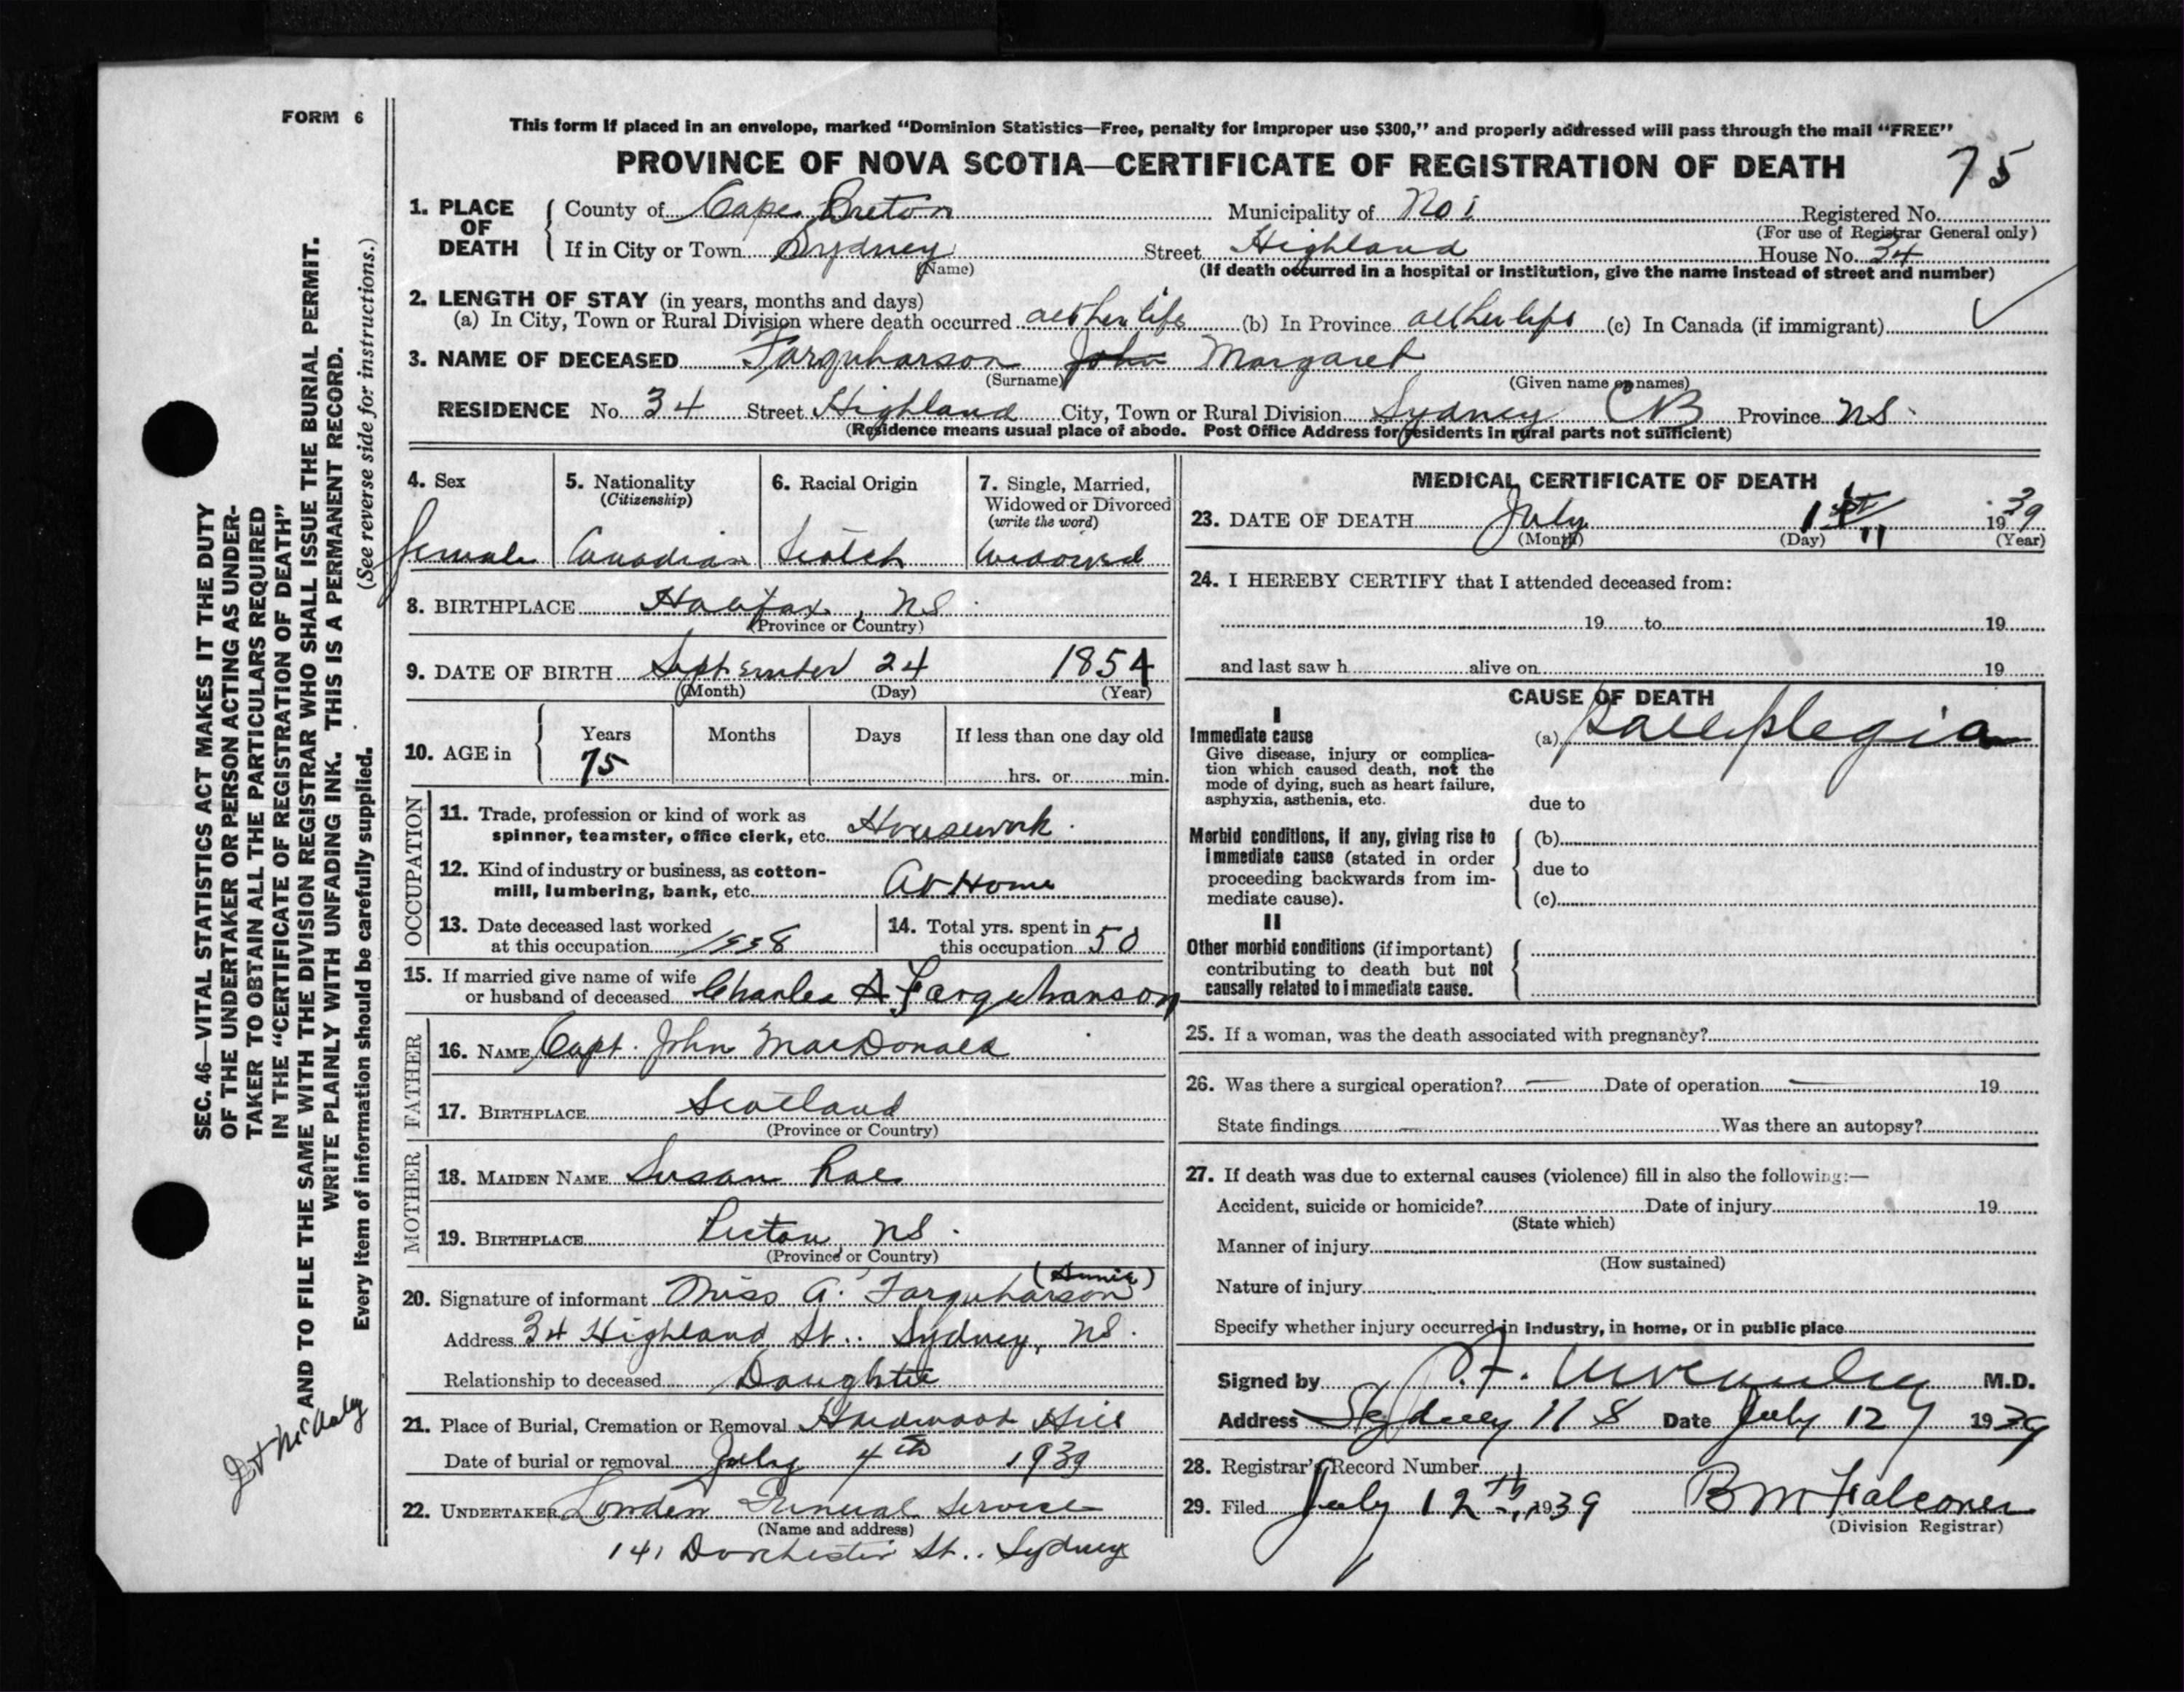 FORM 6
This form if placed in an envelope, marked "Dominion Statistics—Free, penalty for improper use $300," and properly addressed will pass through the mail "FREE"
PROVINCE OF NOVA SCOTIA—CERTIFICATE OF REGISTRATION OF DEATH
75
1. PLACE OF DEATH County of Cape Breton Municipality of No 1 Registered No.
(For use of Registrar General only)
If in City or Town Sydney Street Highland House No. 34
(Name) (If death occurred in a hospital or institution, give the name instead of street and number)
2. LENGTH OF STAY (in years, months and days)
(a) In City, Town or Rural Division where death occurred all her life (b) In Province all her life (c) In Canada (if immigrant)
3. NAME OF DECEASED Farquharson John Margaret
(Surname) (Given name or names)
RESIDENCE No. 34 Street Highland City, Town or Rural Division Sydney CB Province NS.
(Residence means usual place of abode. Post Office Address for residents in rural parts not sufficient)
4. Sex
female
5. Nationality
(Citizenship)
Canadian
6. Racial Origin
Scotch
7. Single, Married,
Widowed or Divorced
(write the word)
Widowed
8. BIRTHPLACE Halifax, NS.
(Province or Country)
9. DATE OF BIRTH September 24 1854
(Month) (Day) (Year)
10. AGE in Years Months Days If less than one day old
75 hrs. or min.
OCCUPATION
11. Trade, profession or kind of work as
spinner, teamster, office clerk, etc. Housework.
12. Kind of industry or business, as cotton-
mill, lumbering, bank, etc. At Home
13. Date deceased last worked
at this occupation 1938
14. Total yrs. spent in
this occupation 50
15. If married give name of wife
or husband of deceased Charles A Farquharson
FATHER
16. NAME Capt. John MacDonald
17. BIRTHPLACE Scotland
(Province or Country)
MOTHER
18. MAIDEN NAME Susan Rae
19. BIRTHPLACE Pictou, NS.
(Province or Country)
(Annie)
20. Signature of informant Miss A. Farquharson
Address 34 Highland St., Sydney, NS.
Relationship to deceased Daughter
21. Place of Burial, Cremation or Removal Hardwood Hill
Date of burial or removal July 4th 1939
22. UNDERTAKER Lowden Funeral Service
(Name and address)
141 Dorchester St., Sydney
MEDICAL CERTIFICATE OF DEATH
23. DATE OF DEATH July 1st 11 1939
(Month) (Day) (Year)
24. I HEREBY CERTIFY that I attended deceased from:
19 to 19
and last saw h alive on 19
CAUSE OF DEATH
I
Immediate cause (a)
Give disease, injury or complica-
tion which caused death, not the
mode of dying, such as heart failure,
asphyxia, asthenia, etc.
due to
Morbid conditions, if any, giving rise to
immediate cause (stated in order
proceeding backwards from im-
mediate cause).
(b)
due to
(c)
II
Other morbid conditions (if important)
contributing to death but not
causally related to immediate cause.
25. If a woman, was the death associated with pregnancy?
26. Was there a surgical operation? — Date of operation — 19
State findings — Was there an autopsy?
27. If death was due to external causes (violence) fill in also the following:—
Accident, suicide or homicide? Date of injury 19
(State which)
Manner of injury
(How sustained)
Nature of injury
Specify whether injury occurred in industry, in home, or in public place
Signed by M.D.
Address Sydney N S Date July 12 1939
28. Registrar's Record Number
29. Filed July 12th, 1939 B M Falconer
(Division Registrar)
SEC. 46—VITAL STATISTICS ACT MAKES IT THE DUTY
OF THE UNDERTAKER OR PERSON ACTING AS UNDER-
TAKER TO OBTAIN ALL THE PARTICULARS REQUIRED
IN THE "CERTIFICATE OF REGISTRATION OF DEATH"
AND TO FILE THE SAME WITH THE DIVISION REGISTRAR WHO SHALL ISSUE THE BURIAL PERMIT.
WRITE PLAINLY WITH UNFADING INK. THIS IS A PERMANENT RECORD.
Every item of information should be carefully supplied. (See reverse side for instructions.)